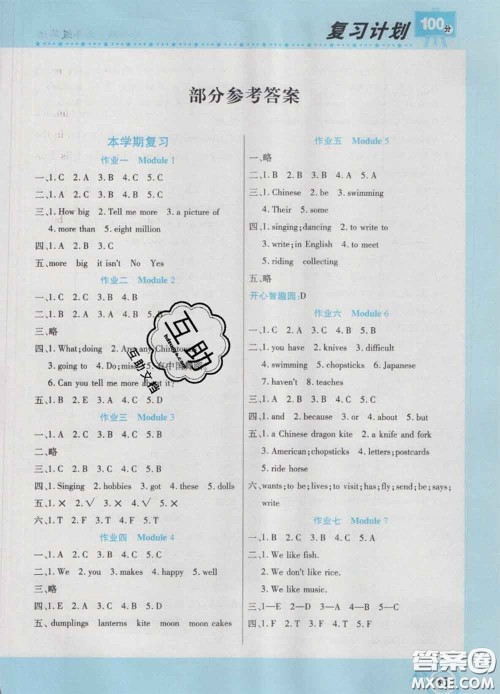 复习计划 100分
部分参考答案
本学期复习
作业一 Module 1
一、1. C 2. A 3. B 4. C 5. C
二、1. C 2. A 3. B 4. A 5. B
三、1. How big 2. Tell me more 3. a picture of
4. more than 5. eight million
四、1. A 2. B 3. C
五、more big it isn't No Yes
作业二 Module 2
一、1. C 2. C 3. B 4. B
二、1. B 2. A 3. B 4.
三、略
四、1. What;doing 2. Are any Chinatown
3. going to 4. Do;miss
6. Can you tell me more about it?
五、1. B 2. E 3. A 4. C 5. D
作业三 Module 3
一、1. C 2. B 3. C 4. A 5. B
二、略
三、1. B 2. C 3. A 4. C 5. B
四、1. Singing 2. hobbies 3. got 4. these 5. dolls
五、1. × 2. √ 3. × 4. √ 5. ×
六、1. T 2. F 3. T 4. F 5. T
作业四 Module 4
一、1. C 2. C 3. B 4. C 5. A
二、1. We 2. happy 3. makes 4. happy 5. well
三、略
四、1. B 2. E 3. A 4. C 5. D
五、dumplings lanterns kite moon moon cakes
作业五 Module 5
一、略
二、1. B 2. B 3. A 4. A 5. A
三、1. Chinese 2. be 3. swimming
4. Their 5. some
四、1. singing;dancing 2. to write to
3. write;in English 4. to meet
5. riding collecting
五、略
开心智趣园:D
作业六 Module 6
一、略
二、1. you have 2. knives 3. difficult
4. swimming 5. chopsticks 6. Japanese
7. haven't 8. teaches
三、1. B 2. C 3. B 4. A 5. B
四、1. and 2. because 3. or 4. but
五、1. a Chinese dragon kite 2. a knife and fork
3. American;chopsticks 4. letters;postcards
5. ride horse
六、wants;to be;lives;to visit;has;send;be;says;
write
作业七 Module 7
一、略
二、1. We like fish.
2. We don't like rice.
3. We like music.
三、1—C 2—D 3—E 4—B 5—A
四、1. F 2. F 3. T 4. T 5. F
互助
互助文档
答案圈
MXQE.COM